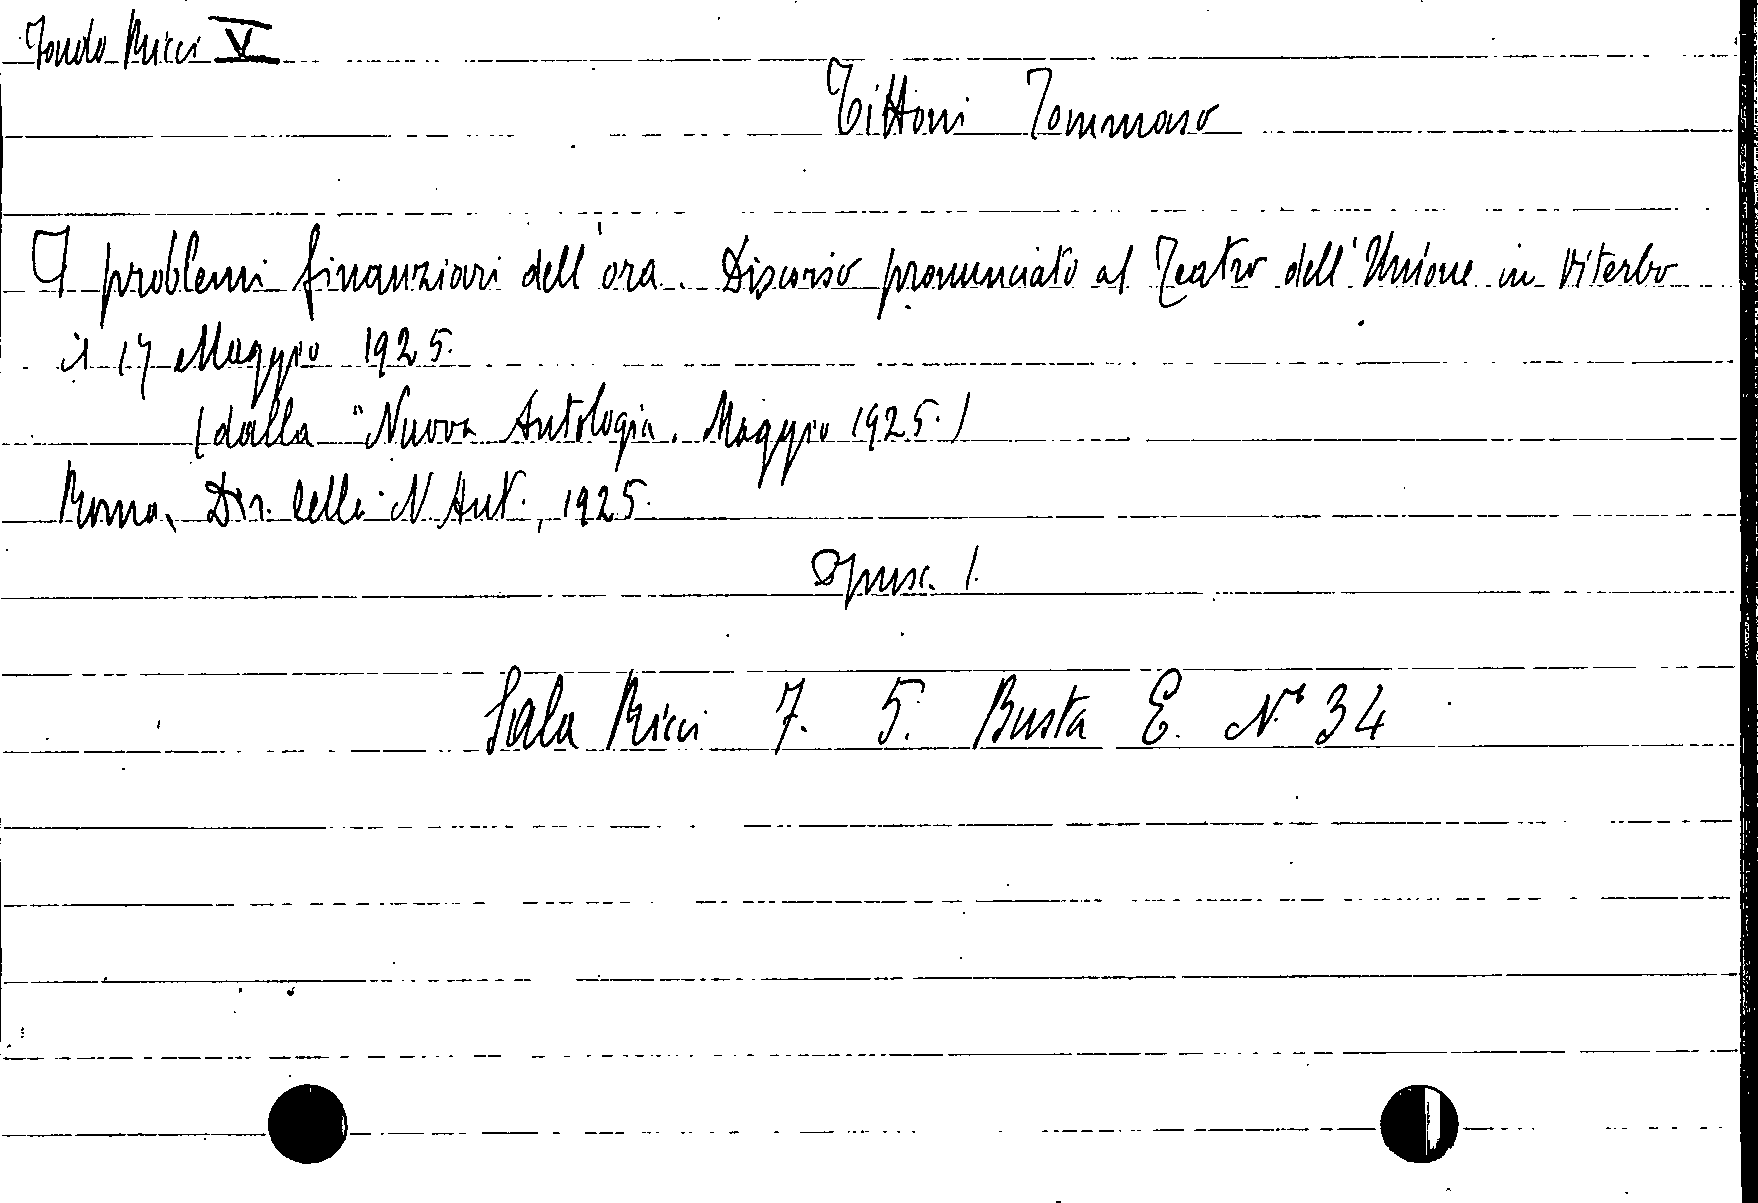 Fondo Ricci V
Tittoni Tommaso
I problemi finanziari dell'ora. Discorso pronunciato al Teatro dell'Unione in Viterbo
il 17 Maggio 1925.
(dalla "Nuova Antologia. Maggio 1925.)
Roma, Dir. della N. Ant., 1925.
Opusc. 1.
Sala Ricci 7. 5. Busta E. N° 34